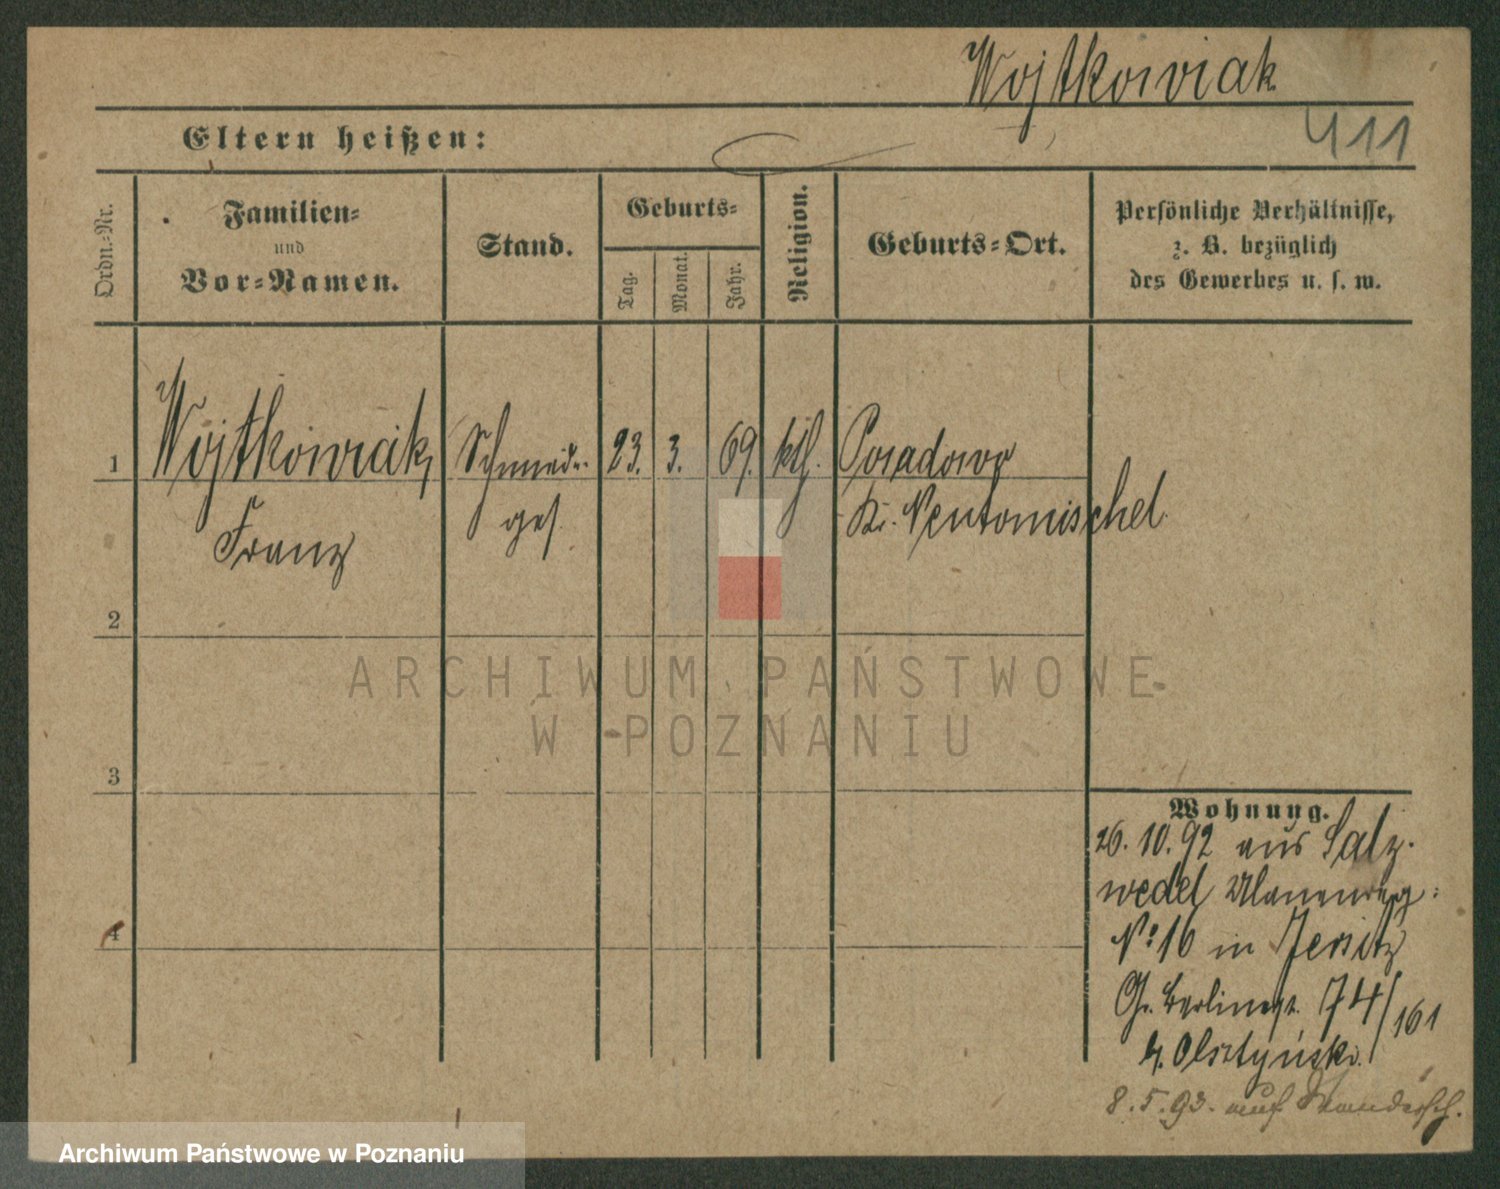 Wojtkowiak
411
Eltern heißen:
Ordn.-Nr.
Familien-
und
Vor-Namen.
Stand.
Geburts-
Tag.
Monat.
Jahr.
Religion.
Geburts-Ort.
Persönliche Verhältnisse,
z. B. bezüglich
des Gewerbes u. s. w.
1
Wojtkowiak, Schmiede- 23. 3. 69. kth. Posadowo
Franz ges. Kr. Neutomischel
2
3
4
Wohnung.
26. 10. 92 aus Salz-
wedel Ulanenweg
No 16 in Jersitz
Gr. Berlinerst. 74/161
b. Olsztyński.
8. 5. 93. auf Wandersch.
ARCHIWUM PAŃSTWOWE
W POZNANIU
Archiwum Państwowe w Poznaniu